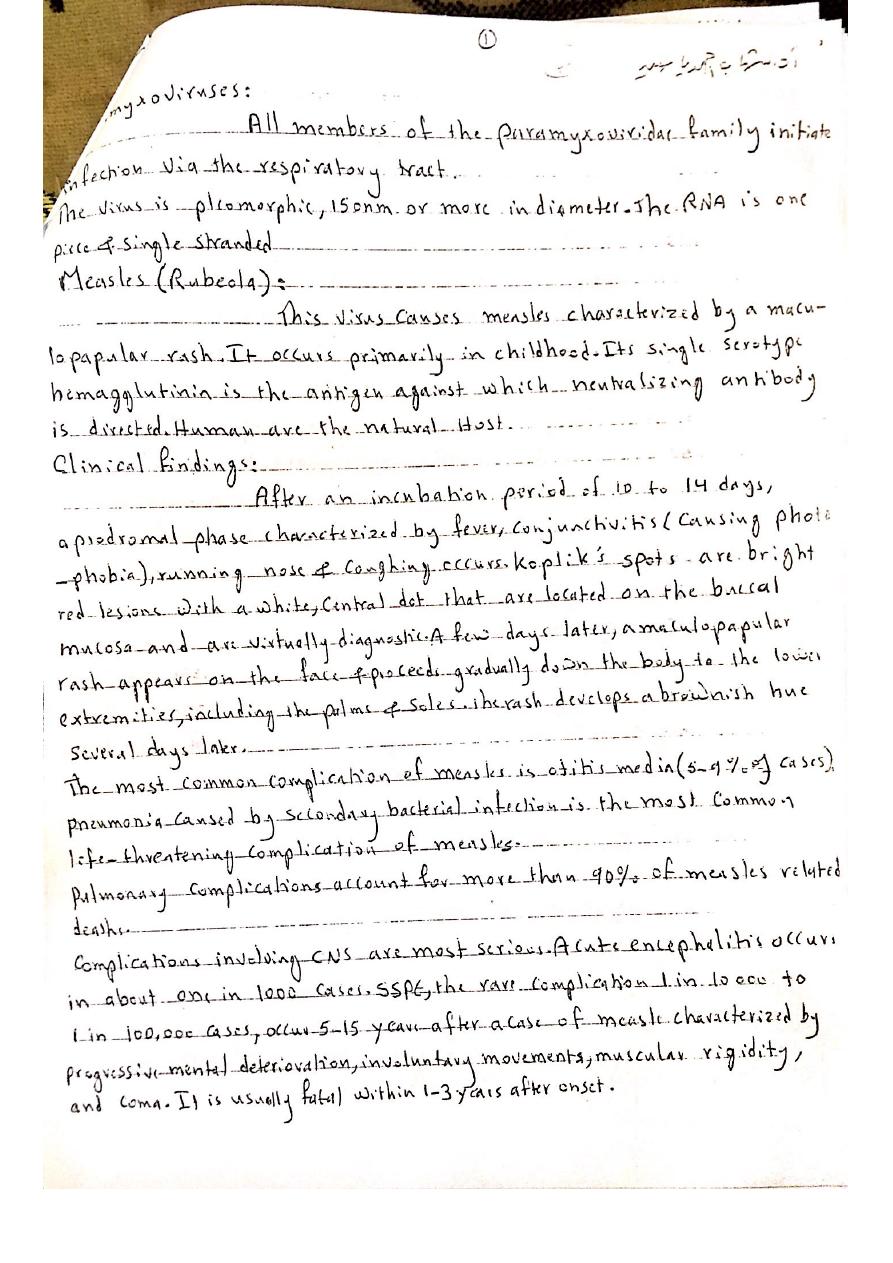 ①
myxoviruses:
All members of the paramyxoviridae family initiate
infection via the respiratory tract.
The virus is pleomorphic, 150nm. or more in diameter. The RNA is one
piece & single stranded
Measles (Rubeola):
This virus causes measles characterized by a macu-
lopapular rash. It occurs primarily in childhood. Its single serotype
hemagglutinin is the antigen against which neutralizing antibody
is directed. Human are the natural Host.
Clinical findings:
After an incubation period of 10 to 14 days,
a prodromal phase characterized by fever, conjunctivitis (causing photo
-phobia), running nose & coughing occurs. Koplik's spots are bright
red lesions with a white, central dot that are located on the buccal
mucosa and are virtually diagnostic. A few days later, a maculopapular
rash appears on the face & proceeds gradually down the body to the lower
extremities, including the palms & soles. The rash develops a brownish hue
several days later.
The most common complication of measles is otitis media (5-9% of cases),
pneumonia caused by secondary bacterial infection is the most common
life-threatening complication of measles.
Pulmonary complications account for more than 90% of measles related
deaths.
Complications involving CNS are most serious. Acute encephalitis occurs
in about one in 1000 cases. SSPE, the rare complication 1 in 10 000 to
1 in 100,000 cases, occur 5-15 years after a case of measle characterized by
progressive mental deterioration, involuntary movements, muscular rigidity,
and coma. It is usually fatal within 1-3 years after onset.